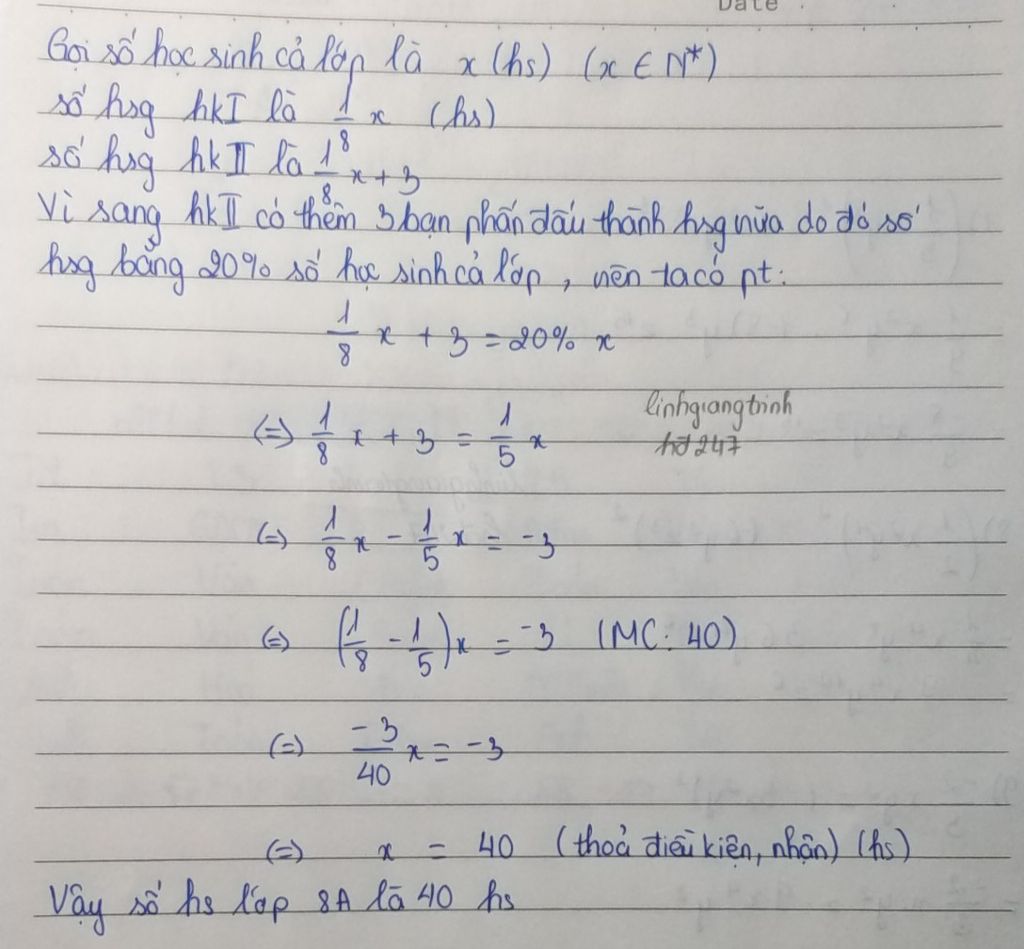 Date
Gọi số học sinh cả lớp là x (hs) (x ∈ N*)
số hsg hkI là 1/8 x (hs)
số hsg hkII là 1/8 x + 3
Vì sang hkII có thêm 3 bạn phấn đấu thành hsg nữa do đó số
hsg bằng 20% số học sinh cả lớp, nên ta có pt:
1/8 x + 3 = 20% x
(=) 1/8 x + 3 = 1/5 x
linhgiangtrinh
hđ247
(=) 1/8 x - 1/5 x = -3
(=) (1/8 - 1/5)x = -3 (MC: 40)
(=) -3/40 x = -3
(=) x = 40 (thoả điều kiện, nhận) (hs)
Vậy số hs lớp 8A là 40 hs